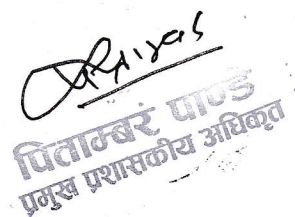 पिताम्बर पाण्डे
प्रमुख प्रशासकीय अधिकृत